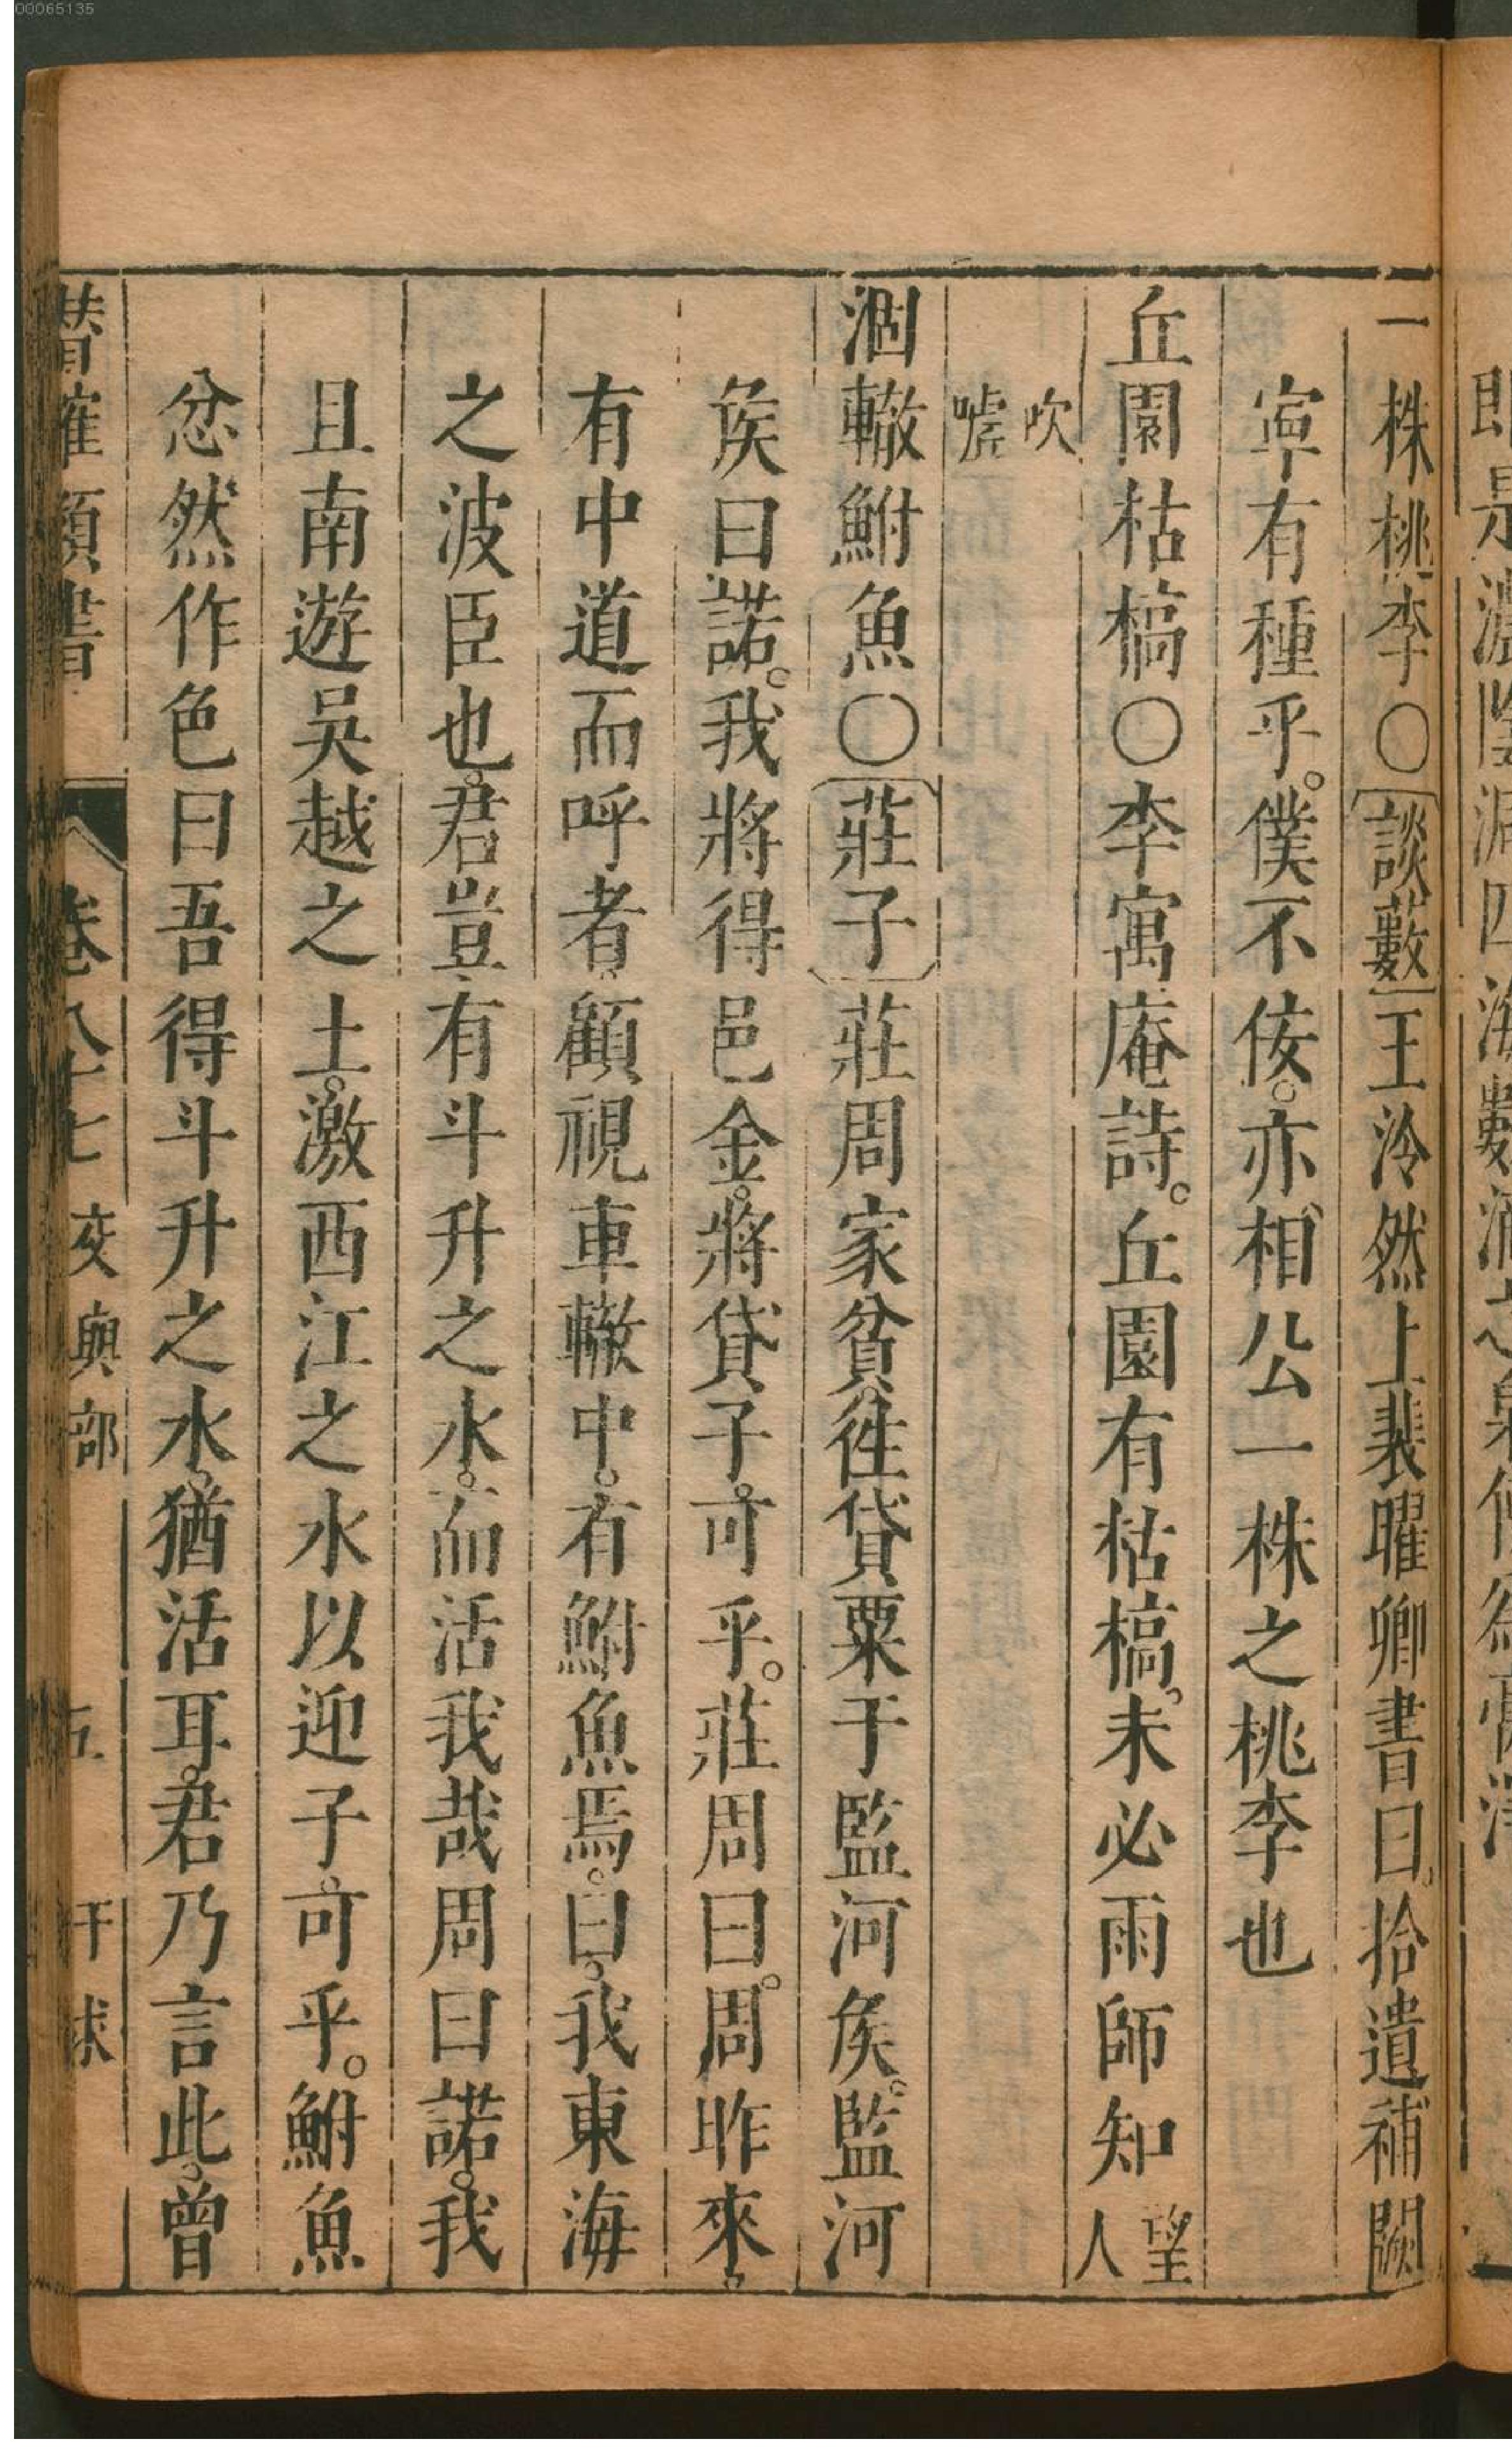 00065135
一株桃李○〔談藪〕王泠然上裴曜卿書曰拾遺補闕
寧有種乎。僕不佞。亦相公一株之桃李也
丘園枯槁○李寓庵詩。丘園有枯槁。未必雨師知望人
吹噓
涸轍鮒魚○〔莊子〕莊周家貧。徃貸粟于監河矦。監河
矦曰諾。我將得邑金。將貸子。可乎。莊周曰。周昨來。
有中道而呼者。顧視車轍中。有鮒魚焉。曰。我東海
之波臣也。君豈有斗升之水。而活我哉周曰諾。我
且南遊吳越之土。激西江之水以迎子。可乎。鮒魚
忿然作色曰吾得斗升之水。猶活耳。君乃言此。曾
卷八十七 交與部 五